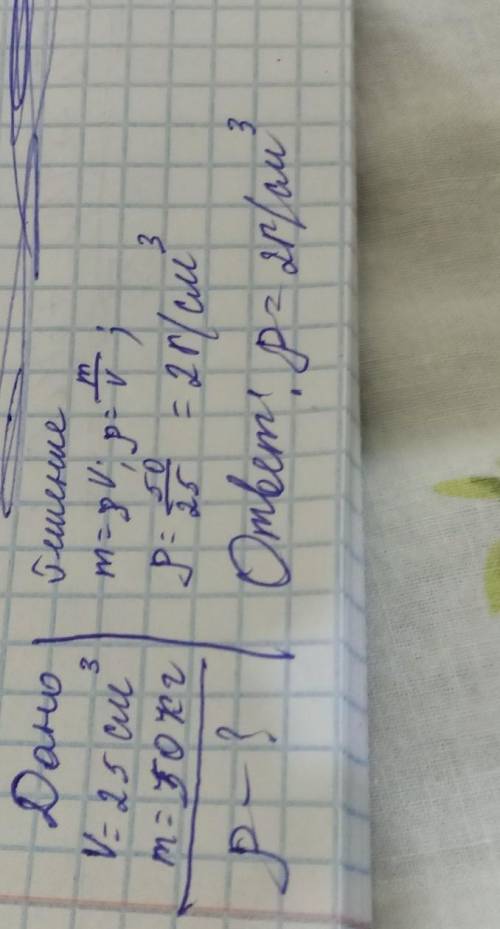 Дано
V = 25 см³
m = 50 кг
ρ - ?
Решение
m = ρV; ρ = m/V;
ρ = 50/25 = 2 г/см³
Ответ: ρ = 2 г/см³